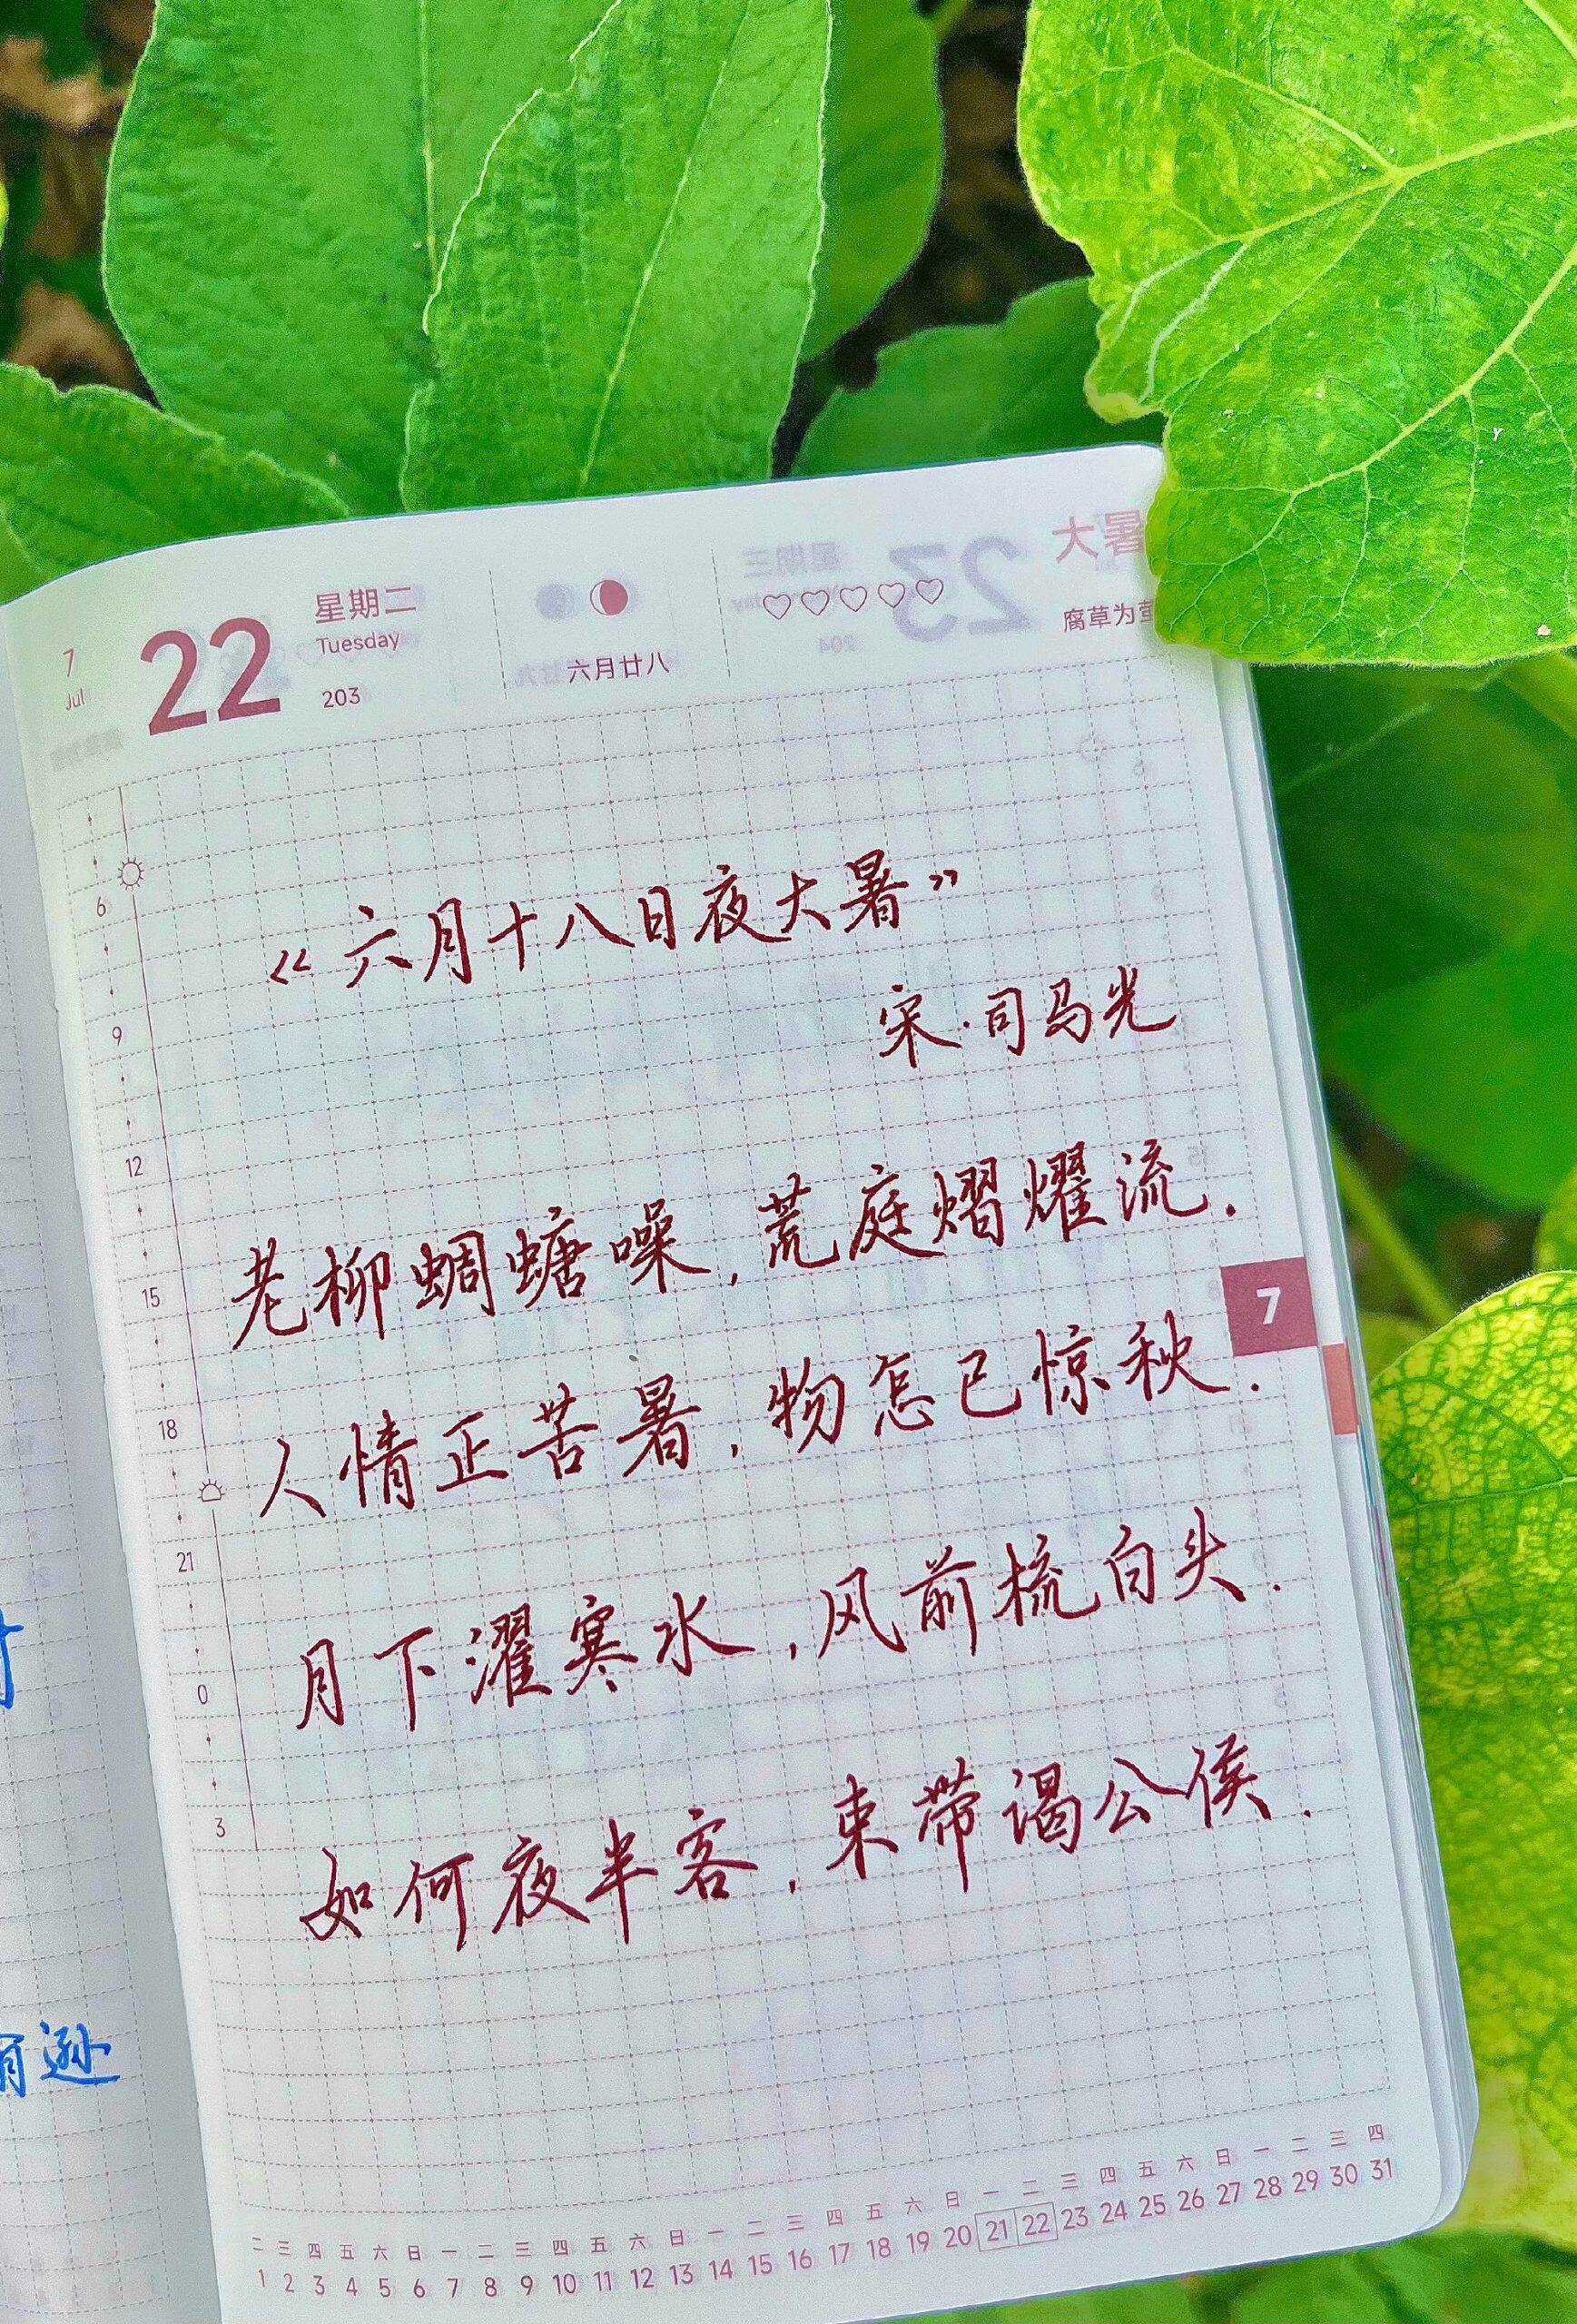 7 22 星期二 大暑
Jul Tuesday
203 六月廿八 腐草为
《六月十八日夜大暑》
宋·司马光
老柳蜩螗噪,荒庭熠燿流.
人情正苦暑,物怎已惊秋.
月下濯寒水,风前梳白头.
如何夜半客,束带谒公侯.
6
9
12
15
18
21
0
3
7
逊
二 三 四 五 六 日 一 二 三 四 五 六 日 一 二 三 四 五 六 日 一 二 三 四 五 六 日 一 二 三 四
1 2 3 4 5 6 7 8 9 10 11 12 13 14 15 16 17 18 19 20 21 22 23 24 25 26 27 28 29 30 31